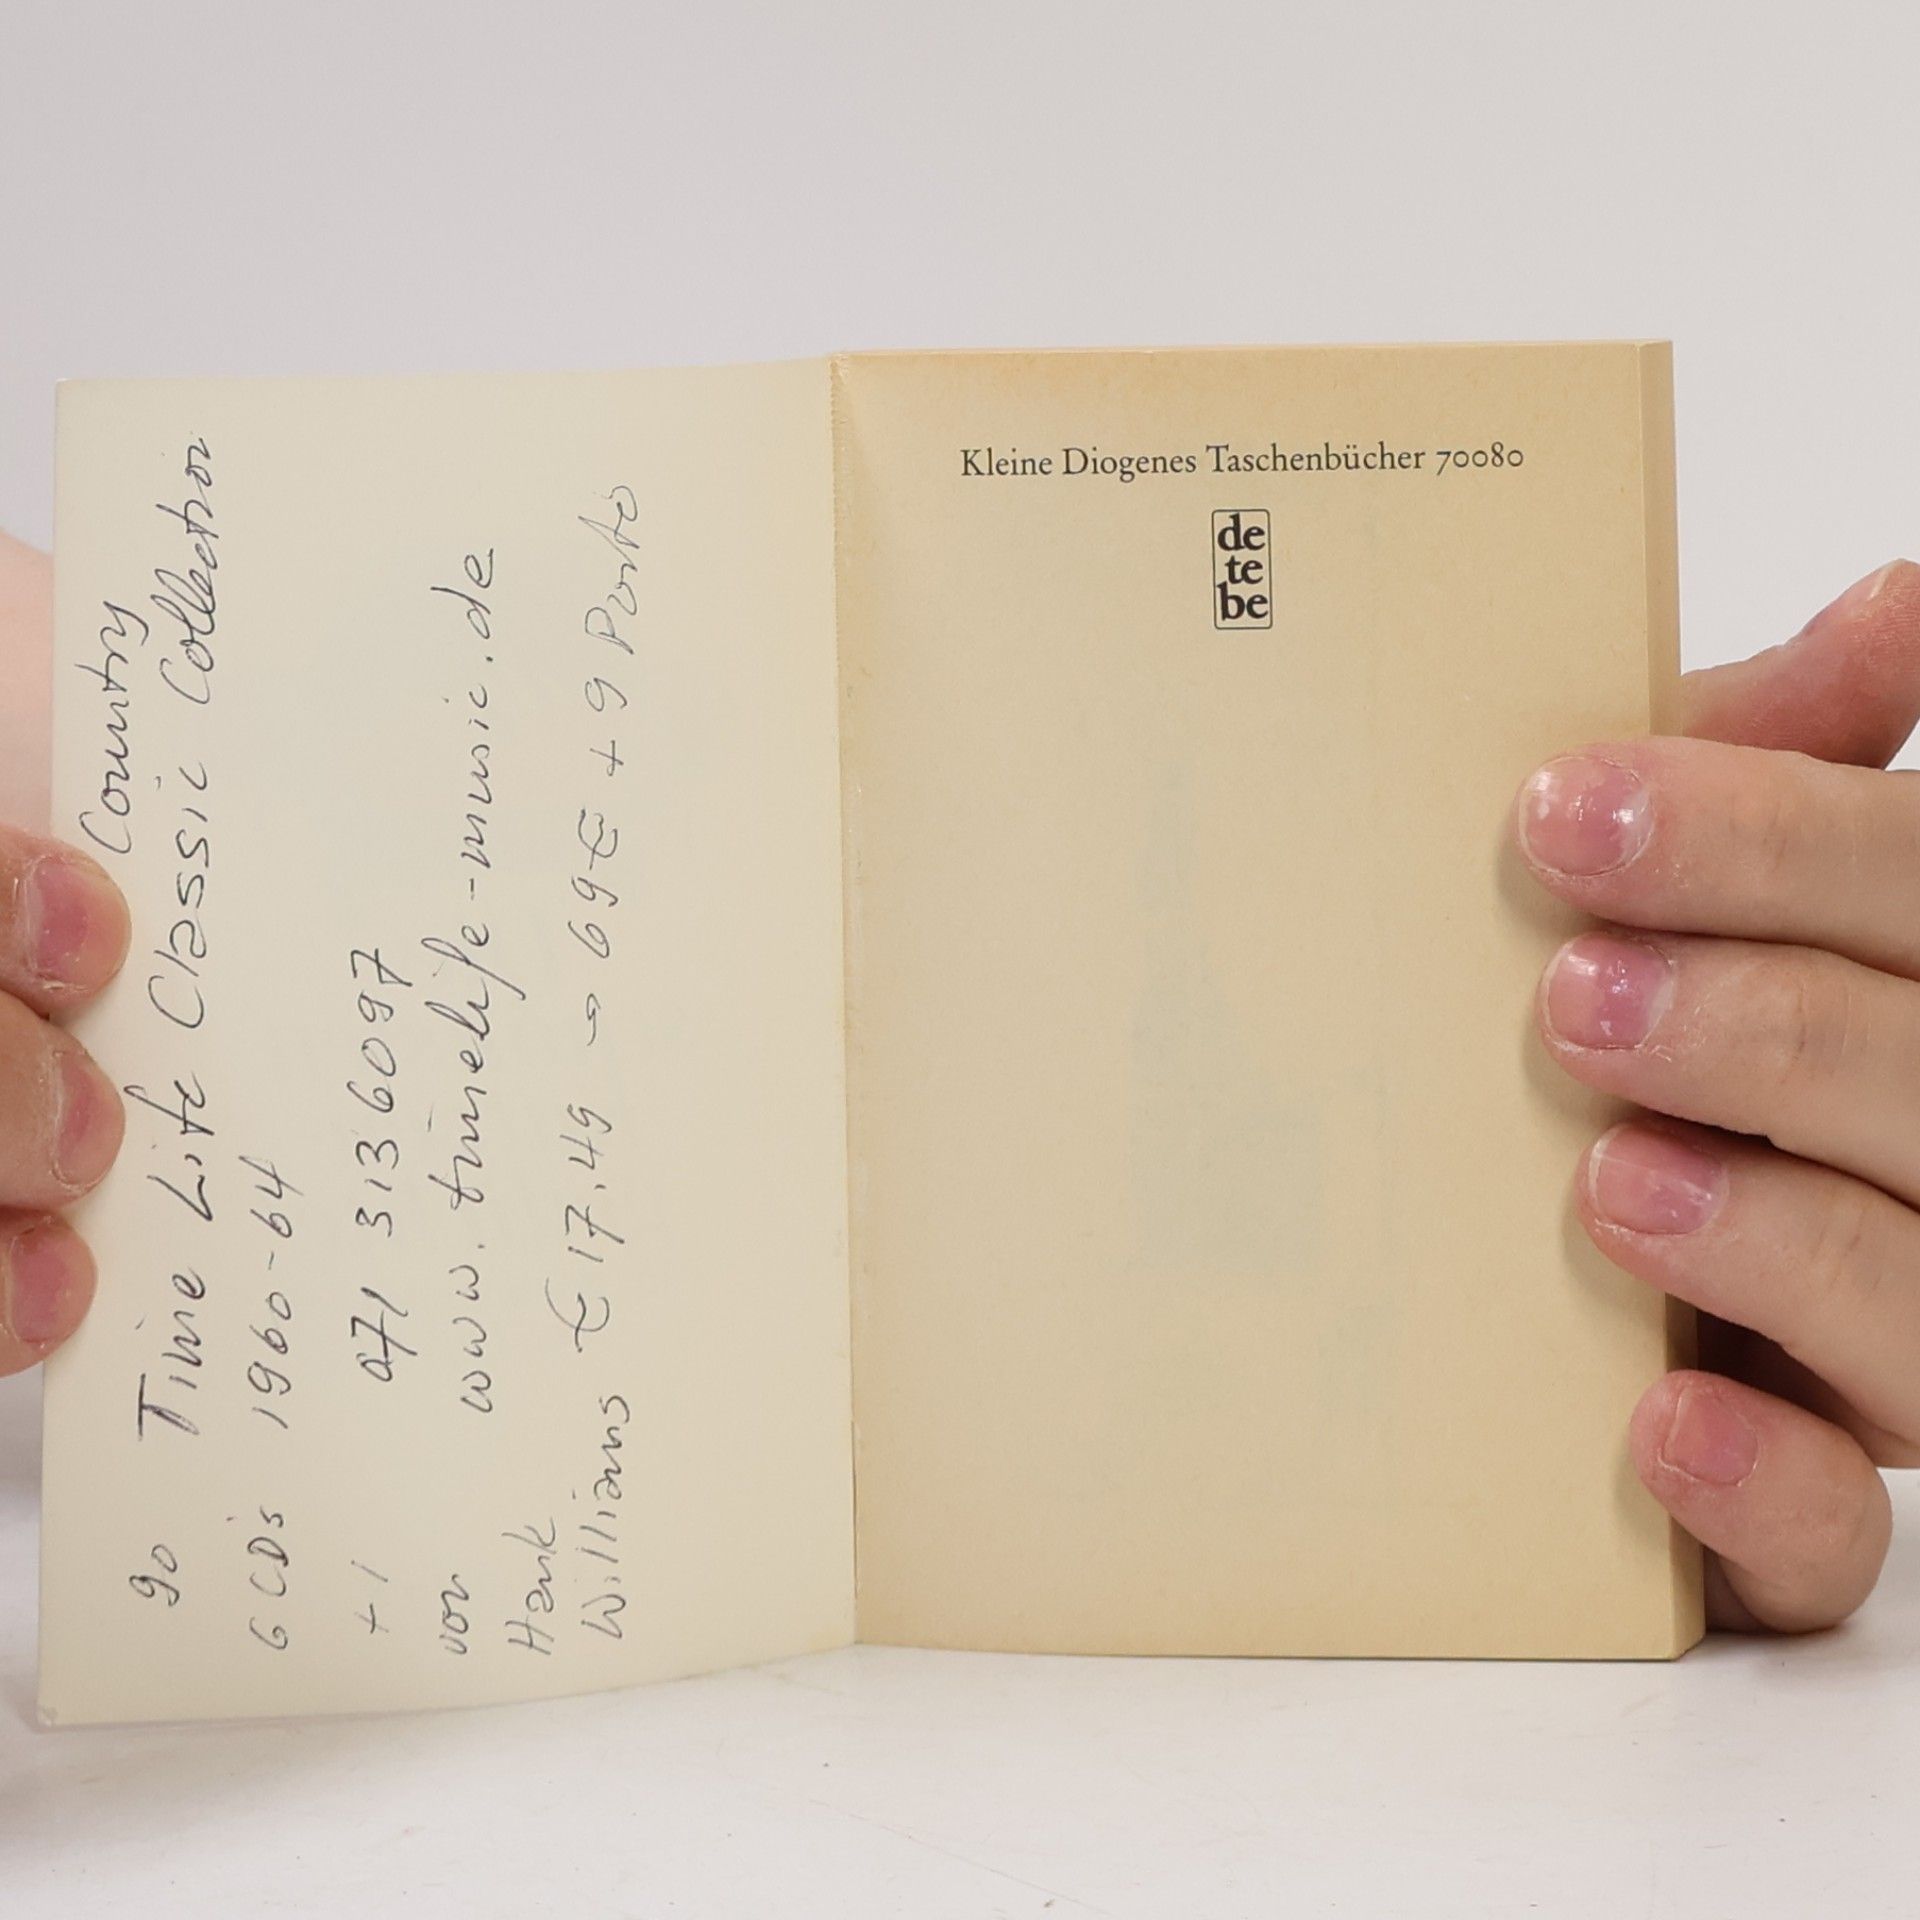 Country
90 Time Life Classic Collection
6 CD's 1960-64
+1 071 313 6097
von www.timelife-music.de
Hank
Williams € 17.49 → 69€ + 9 Porto
Kleine Diogenes Taschenbücher 70080
de
te
be